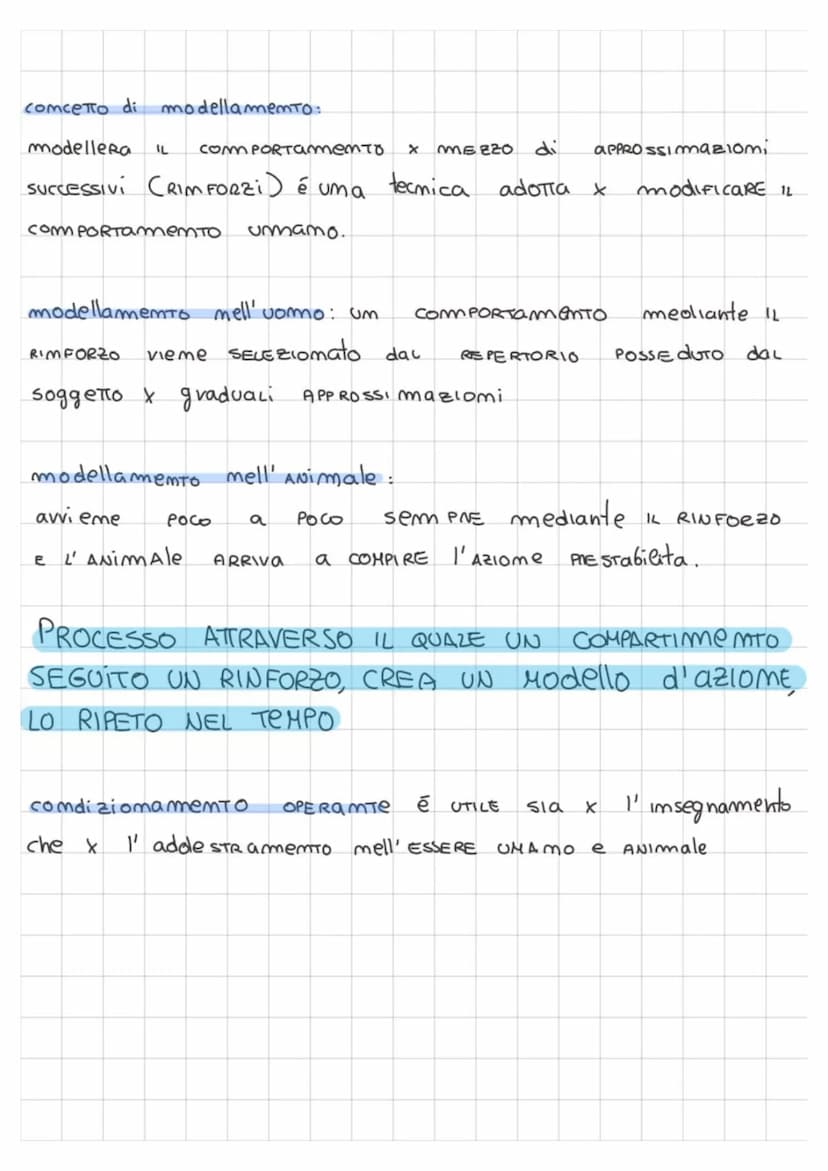 concetto di modellamento:
modellera il comportamento x mezzo di approssimazioni
successivi (rinforzi) é una tecnica adotta x modificare il
comportamento umano.
modellamento nell'uomo: un comportamento mediante il
rinforzo viene selezionato dal repertorio posseduto dal
soggetto x graduali approssimazioni
modellamento nell'animale:
avviene poco a poco sempre mediante il rinforzo
e l'animale arriva a compire l'azione prestabilita.
PROCESSO ATTRAVERSO IL QUALE UN COMPARTIMENTO
SEGUITO UN RINFORZO, CREA UN MODELLO d'azione,
LO RIPETO NEL TEMPO
condizionamento operante é utile sia x l'insegnamento
che x l'addestramento nell'essere umano e animale